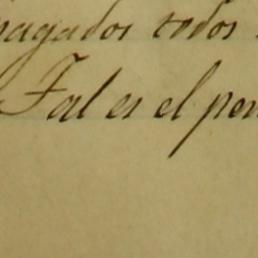 pagados todos
Tal es el pen